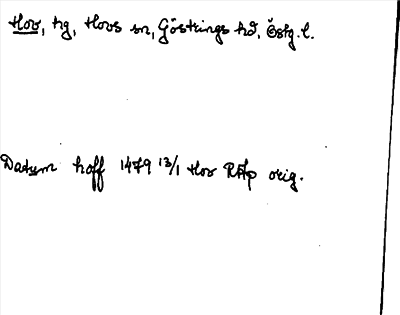 Hov, hg, Hovs sn, Göstrings hd, Östg.l.
Datum hoff 1479 13/1 Hov RAp orig.